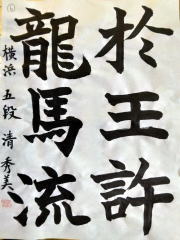 於王許
龍馬流
横浜 五段 清 秀美